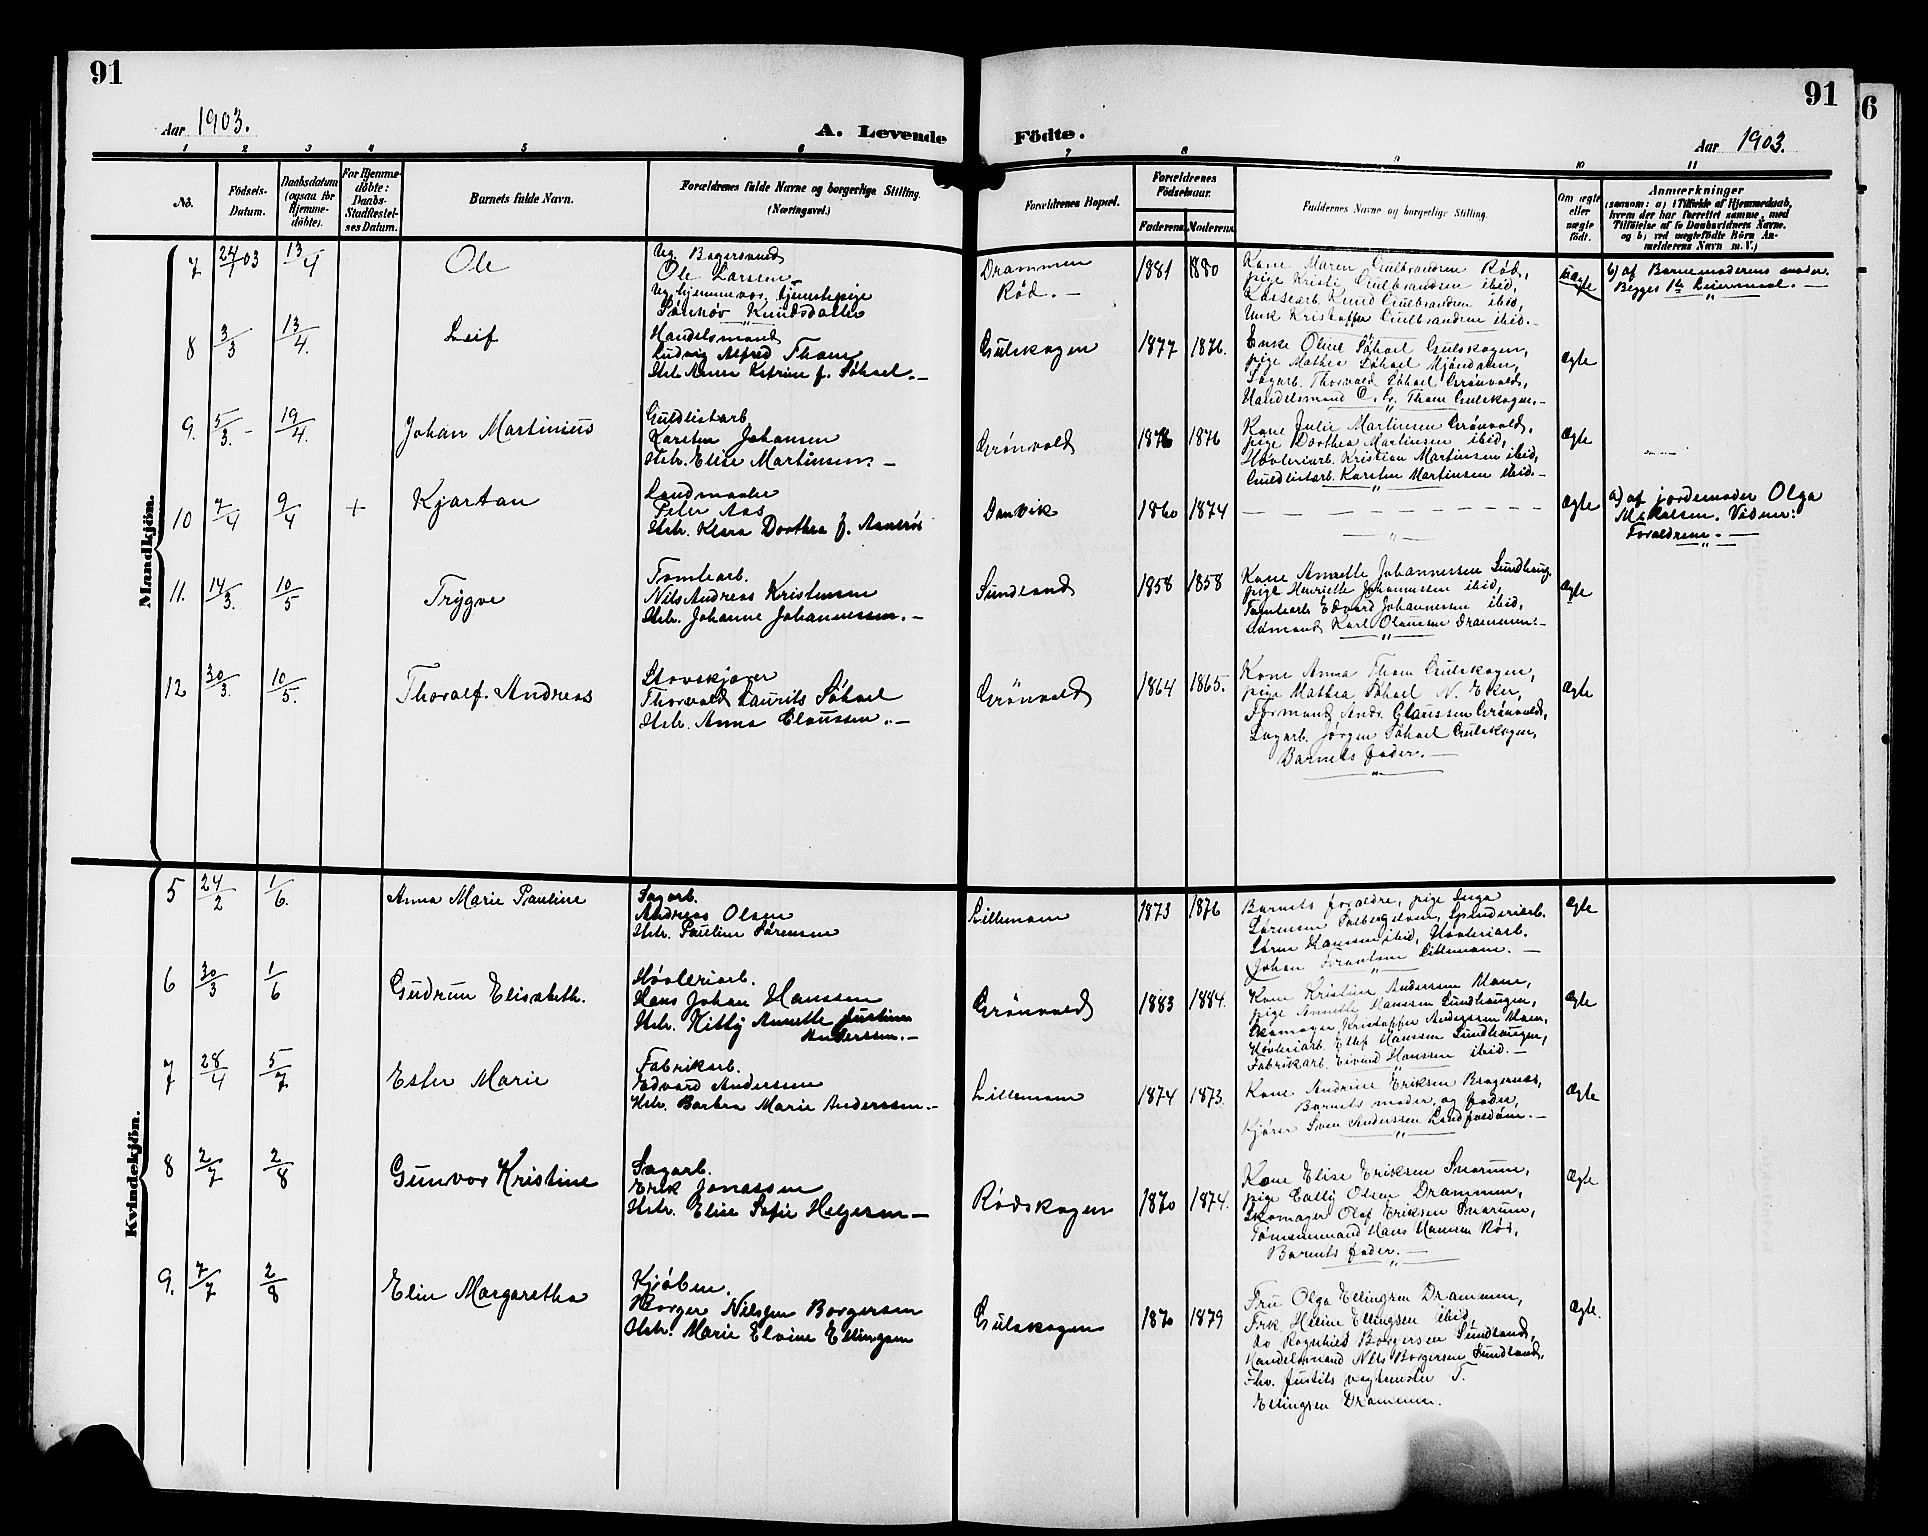 91
91
6
Aar 1903.
A. Levende Födte.
Aar 1903.
1 2 3 4 5 6 7 8 9 10 11
No.
Födsels-Datum.
Daabsdatum (ogsaa for Hjemme-döbte).
For Hjemme-döbte: Daabs-Stadfæstel-ses Datum.
Barnets fulde Navn.
Forældrenes fulde Navne og borgerlige Stilling. (Næringsvei.)
Forældrenes Bopæl.
Forældrenes Födselsaar.
Faderens Moderens
Faddernes Navne og borgerlige Stilling.
Om ægte eller uægte födt.
Anmærkninger
(saasom: a) i Tilfælde af Hjemmedaab, hvem der har forrettet samme, med Tilföielse af to Daabsvidners Navne, og b) ved uægtefödte Börn An-melderens Navn m. V.)
Mandkjön.
7 24/1 03 13/4 Ole
Ug. Bagersvend
Ole Larsen
Ug. hjemmevær. tjenestepige
Sønnøv Knudsdatter
Drammen
Rød. —
1881 1880
Kone Maren Gulbrandsen Rød,
pige Kristi Gulbrandsen ibid,
Lossearb. Knud Gulbrandsen ibid,
Unk Kristoffer Gulbrandsen ibid. —
Uægte
b) af Barnemoderens moder.
Begges 1ste Leiermaal. —
8 3/3 13/4. Leif
Handelsmand
Ludvig Alfred Thom
Hstr. Anna Katrine f. Søhoel. —
Gulskogen
1877 1876.
Enke Oline Søhoel Gulskogen,
pige Mathea Søhoel Mjøndalen,
Sagarb. Thorvald Søhoel Grønvold,
Handelsmand C. Thom Gulskogen. —
Ægte
9. 5/3. — 19/4. Johan Martinius
Guldlistarb
Karsten Johansen
Hstr. Elise Martinsen. —
Grønvold
1876 1876
Kone Julie Martinsen Grønvold,
pige Dorthea Martinsen ibid,
Høvleriarb. Kristian Martinsen ibid,
Guldlistarb. Karsten Martinsen ibid. —
Ægte
10 7/4 9/4 + Kjartan
Landmaaler
Peter Aas
Hstr. Klara Dorthea f.
Danvik
1860 1874
Ægte
a) af jordemoder Olga
Mikalsen. Vidner:
Forældrene. —
11. 14/3. 10/5 Trygve
Tomtearb.
Nils Andreas Kristensen
Hstr. Johanne Johannessen. —
Sundland
1858 1858
Kone Annette Johannessen Sundhaug,
pige Henriette Johannessen ibid,
Tomtearb Edvard Johannessen ibid,
Sømand Karl Olaussen Drammen. —
Ægte
12 30/3. 10/5. Thoralf Andreas
Stovskjører
Thorvald Laurits Søhoel
Hstr. Anna Claussen. —
Grønvold
1864 1865.
Kone Anna Thom Gulskogen,
pige Mathea Søhoel N. Eker,
Formand Andr. Claussen Grønvold,
Sagarb. Jørgen Søhoel Gulskogen,
Barnets fader. —
Ægte
Kvindekjön.
5 24/2 1/6. Anna Marie Pauline
Sagarb.
Andreas Olsen
Hstr. Pauline Sørensen
Lillemoen
1873 1876
Barnets forældre, pige Inga
Sørensen Solbergelven, Spinderiarb.
Søren Hanssen ibid, Høvleriarb.
Johan Lillemoen. —
Ægte
6 30/3 1/6 Gudrun Elisabeth.
Høvleriarb.
Hans Johan Hanssen
Hstr. Kitty Annette Justine
Anderssen. —
Grønvold
1883 1884.
Kone Kristine Anderssen Moen,
pige Annette Hanssen Sundhaugen,
Skomager Kristoffer Anderssen Moen,
Høvleriarb. Ellef Hanssen Sundhaugen,
Fabrikarb. Eivind Hanssen ibid. —
Ægte
7 28/4 5/7 Ester Marie
Fabrikarb.
Edvard Anderssen
Hstr. Barbra Marie Anderssen. —
Lillemoen
1874 1873.
Kone Andrine Eriksen Bragernæs,
Barnets moder og fader,
Kjører Sven Anderssen Landfaldøen. —
Ægte
8 2/7 2/8 Gunvor Kristine
Sagarb.
Erik Jonassen
Hstr. Elise Sofie Helgesen —
Rødskogen
1870 1874.
Kone Elise Eriksen Snarum,
pige Cally Olsen Drammen,
Skomager Olaf Eriksen Snarum,
Tømmermand Hans Hansen Rød,
Barnets fader. —
Ægte
9. 7/7 2/8 Elin Margaretha
Kjøbm.
Borger Nilsen Borgersen
Hstr. Marie Elvine Ellingsen
Gulskogen
1870 1879
Fru Olga Ellingsen Drammen,
Frk Helene Ellingsen ibid,
do Ragnhild Borgersen Sundland,
Handelsmand Nils Borgersen Sundland,
Fhv. Justits vagtmester T.
Ellingsen Drammen.
Ægte.